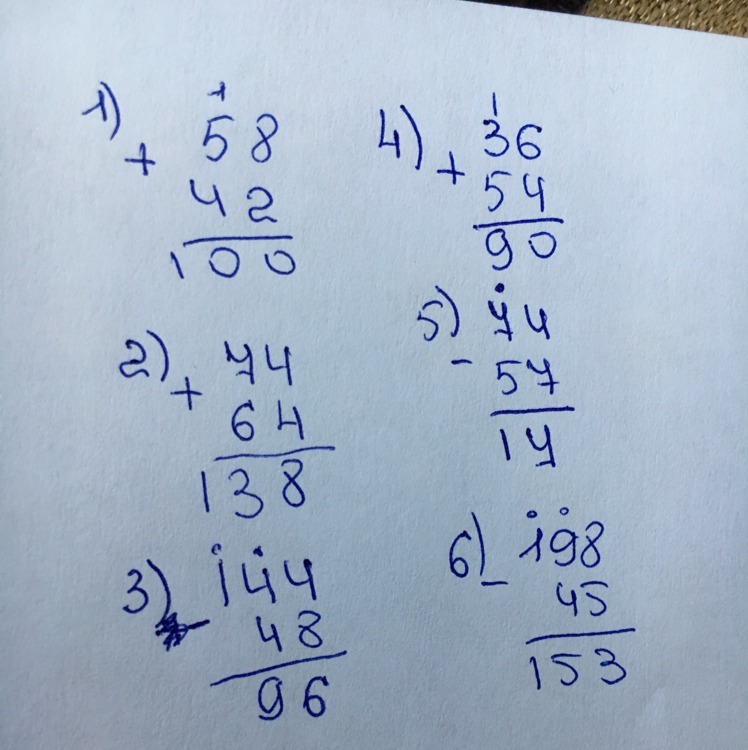 1) 1
+ 58
42
100
2) + 74
64
138
3) - 144
48
96
4) 1
+ 36
54
90
5) - 74
57
17
6) - 198
45
153